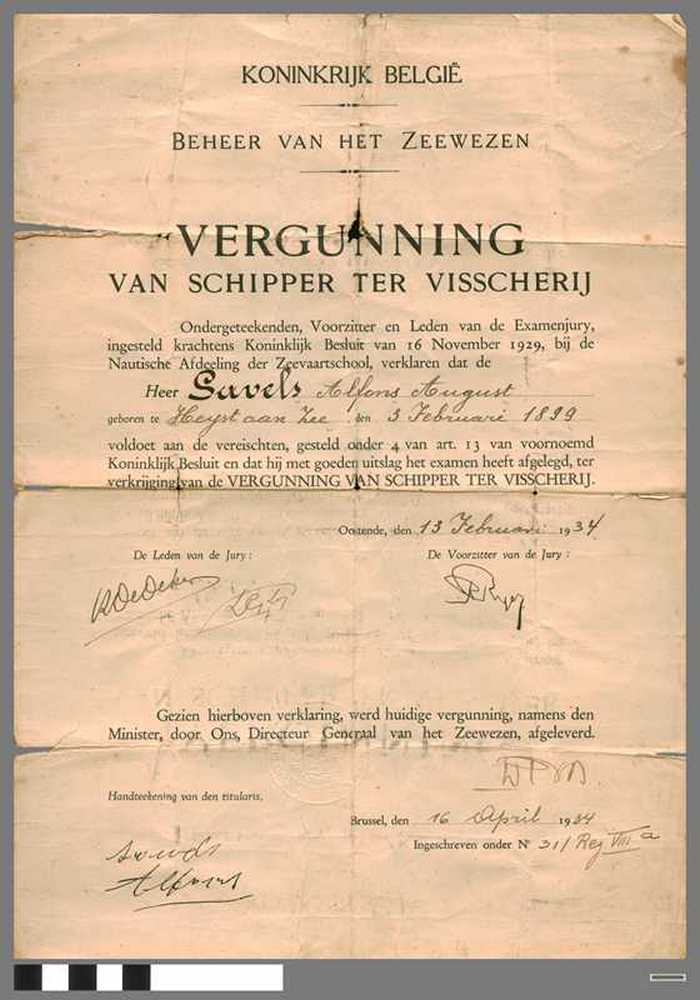 KONINKRIJK BELGIË
BEHEER VAN HET ZEEWEZEN
VERGUNNING
VAN SCHIPPER TER VISSCHERIJ
Ondergeteekenden, Voorzitter en Leden van de Examenjury,
ingesteld krachtens Koninklijk Besluit van 16 November 1929, bij de
Nautische Afdeeling der Zeevaartschool, verklaren dat de
Heer Savels Alfons August
geboren te Heyst aan Zee den 3 Februari 1899
voldoet aan de vereischten, gesteld onder 4 van art. 13 van voornoemd
Koninklijk Besluit en dat hij met goeden uitslag het examen heeft afgelegd, ter
verkrijging van de VERGUNNING VAN SCHIPPER TER VISSCHERIJ.
Oostende, den 13 Februari 1934
De Leden van de Jury :
De Voorzitter van de Jury :
Gezien hierboven verklaring, werd huidige vergunning, namens den
Minister, door Ons, Directeur Generaal van het Zeewezen, afgeleverd.
Handteekening van den titularis,
Brussel, den 16 April 1934
Ingeschreven onder N° 311 Reg VIII a
Alfons